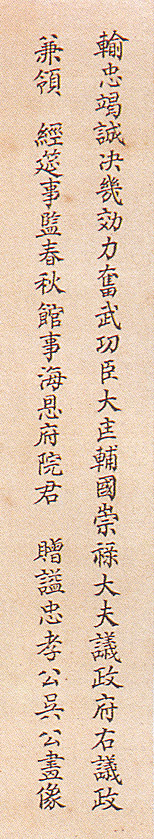 輸忠竭誠决幾効力奮武功臣大匡輔國崇祿大夫議政府右議政
兼領 經筵事監春秋館事海恩府院君 贈謚忠孝公吳公畫像